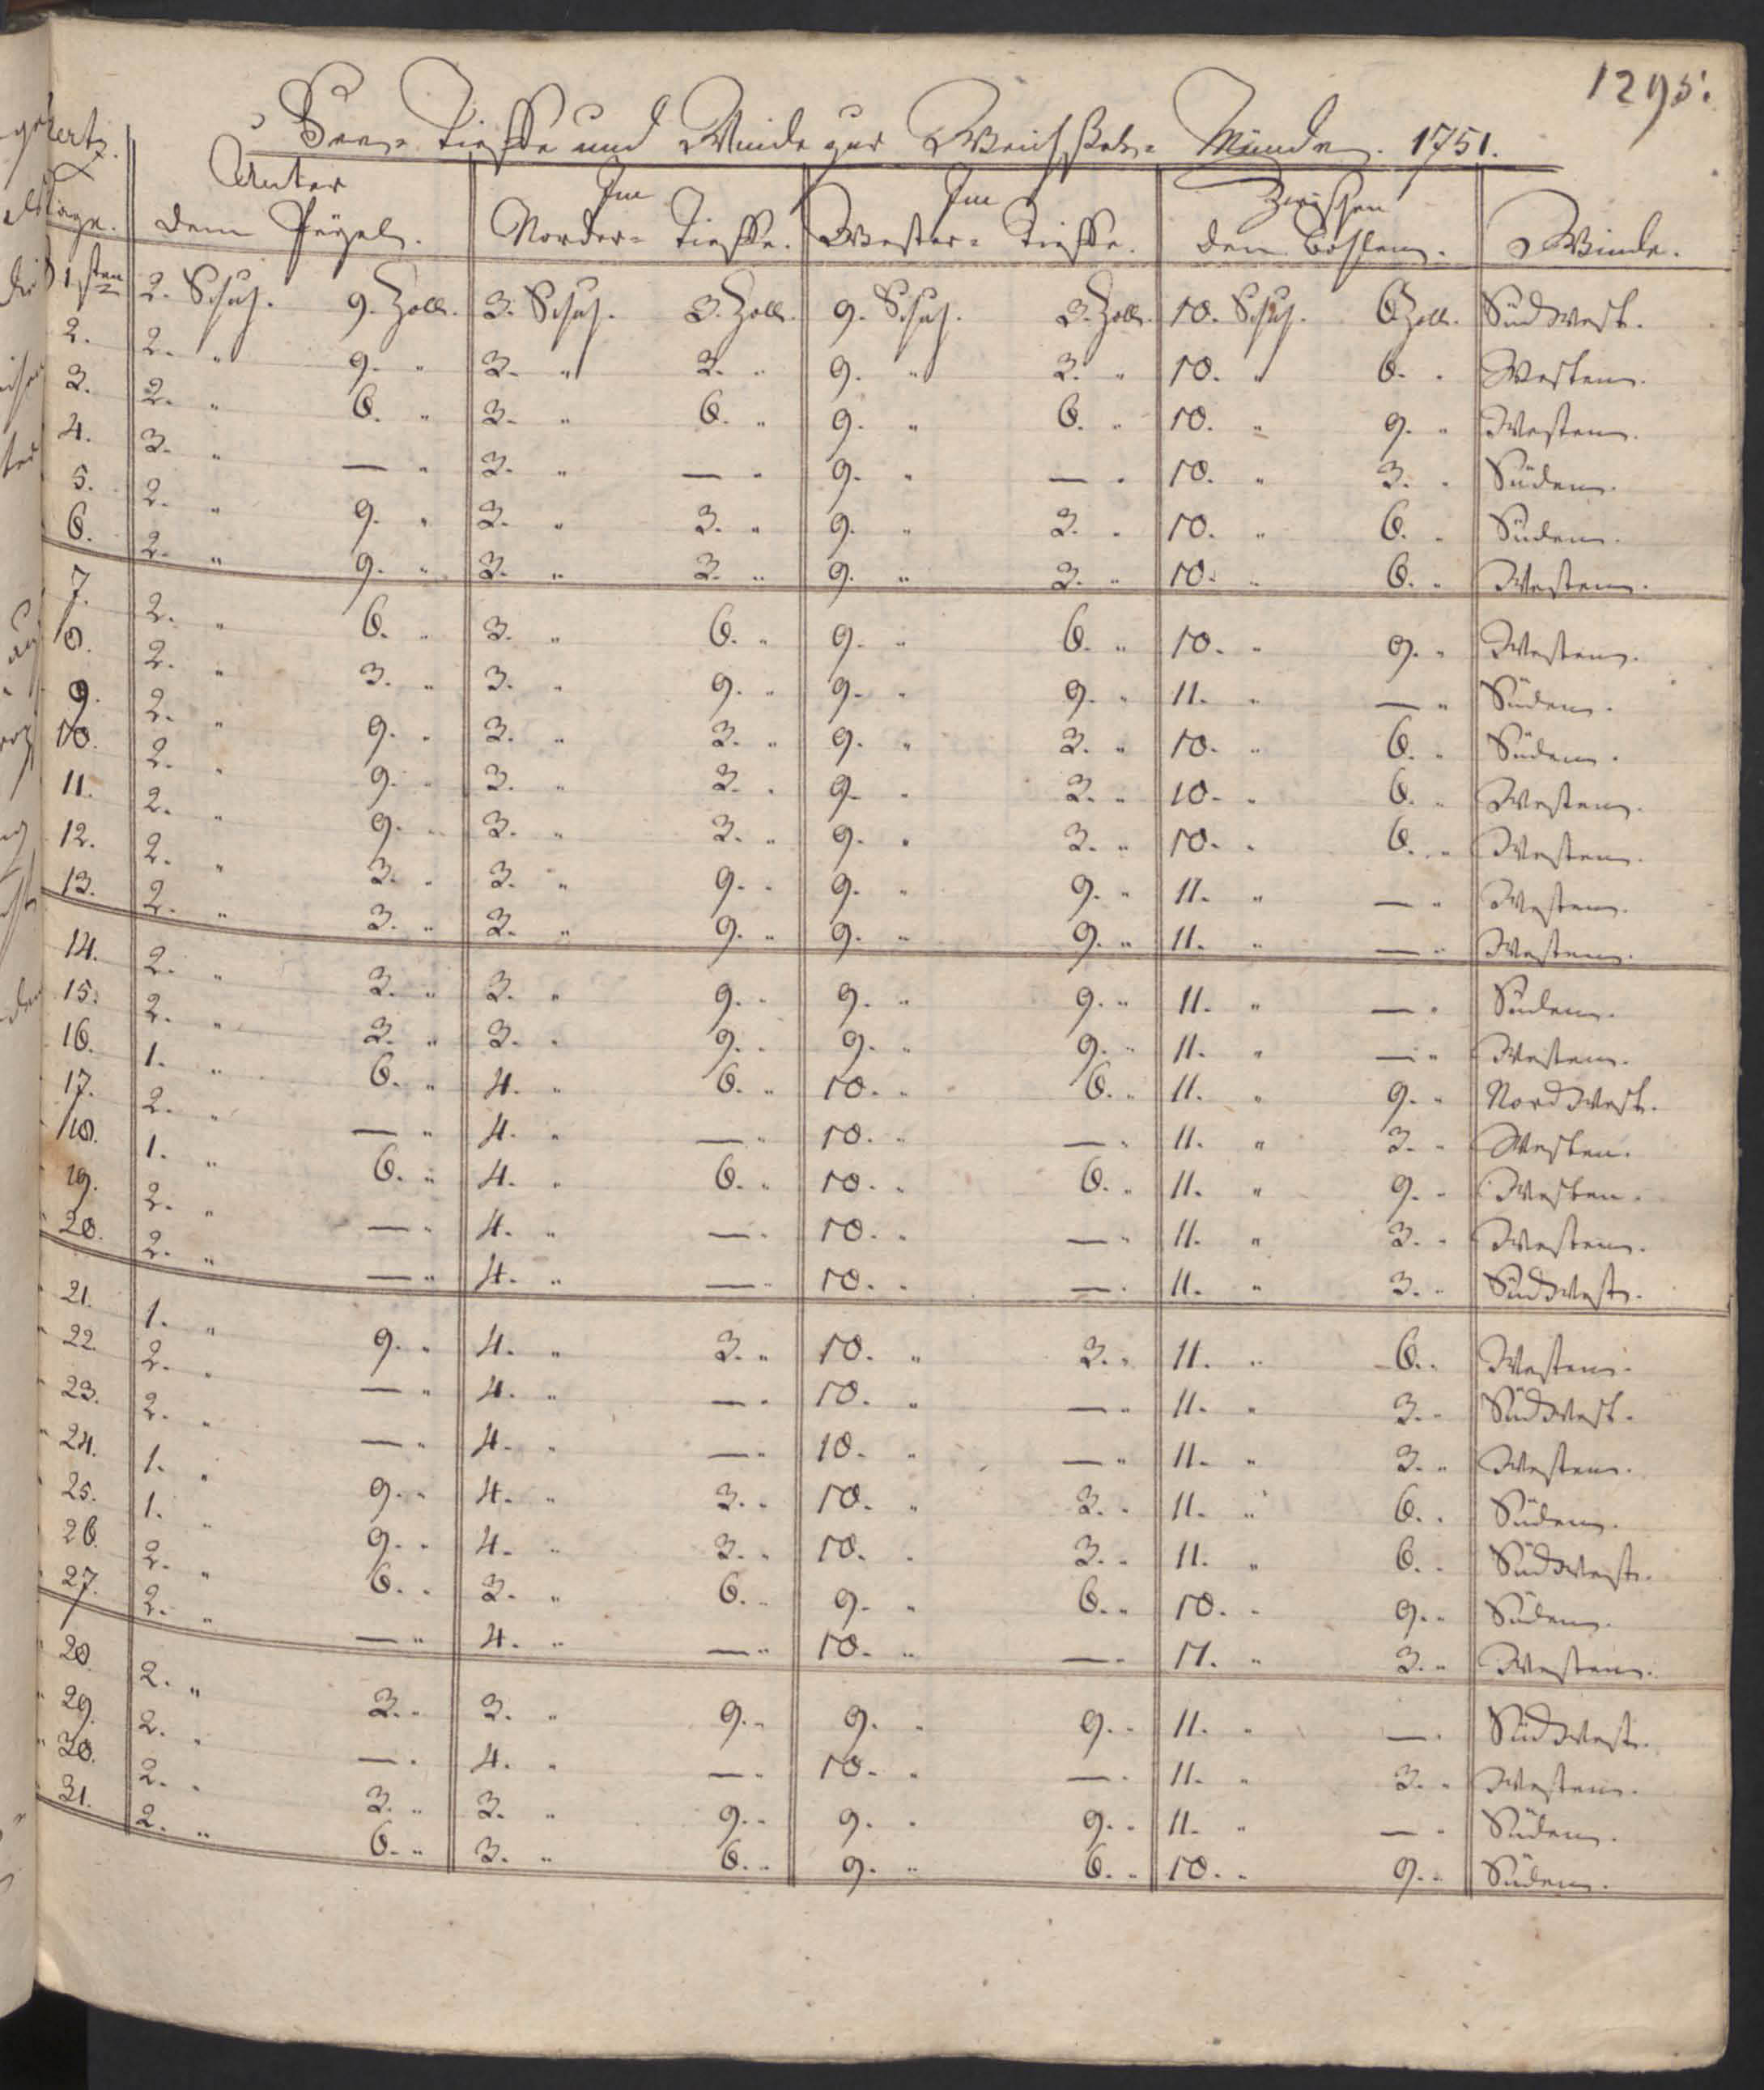 1295.
See- Tieffe und Winde zur Weichsel- Münde. 1751.
Mertz.
Tage. Unter dem Pegel. Im Norder- Tieffe. Im Wester- Tieffe. Zwischen den Bohlen. Winde.
1sten 2. Schuh. 9. Zoll. 3. Schuh. 3. Zoll. 9. Schuh. 3. Zoll. 10. Schuh. 6 Zoll. Südwest.
2. 2. " 9. " 3. " 3. " 9. " 3. " 10. " 6. " Westen.
3. 2. " 6. " 3. " 6. " 9. " 6. " 10. " 9. " Westen.
4. 3. " — " 3. " — " 9. " — " 10. " 3. " Süden.
5. 2. " 9. " 3. " 3. " 9. " 3. " 10. " 6. " Süden.
6. 2. " 9. " 3. " 3. " 9. " 3. " 10. " 6. " Westen.
7. 2. " 6. " 3. " 6. " 9. " 6. " 10. " 9. " Westen.
8. 2. " 3. " 3. " 9. " 9. " 9. " 11. " — " Süden.
9. 2. " 9. " 3. " 3. " 9. " 3. " 10. " 6. " Süden.
10. 2. " 9. " 3. " 3. " 9. " 3. " 10. " 6. " Westen.
11. 2. " 9. " 3. " 3. " 9. " 3. " 10. " 6. " Westen.
12. 2. " 3. " 3. " 9. " 9. " 9. " 11. " — " Westen.
13. 2. " 3. " 3. " 9. " 9. " 9. " 11. " — " Westen.
14. 2. " 3. " 3. " 9. " 9. " 9. " 11. " — " Süden.
15. 2. " 3. " 3. " 9. " 9. " 9. " 11. " — " Westen.
16. 1. " 6. " 4. " 6. " 10. " 6. " 11. " 9. " Nordwest.
17. 2. " — " 4. " — " 10. " — " 11. " 3. " Westen.
18. 1. " 6. " 4. " 6. " 10. " 6. " 11. " 9. " Westen.
19. 2. " — " 4. " — " 10. " — " 11. " 3. " Westen.
20. 2. " — " 4. " — " 10. " — " 11. " 3. " Südwest.
21. 1. " 9. " 4. " 3. " 10. " 3. " 11. " 6. " Westen.
22. 2. " — " 4. " — " 10. " — " 11. " 3. " Südwest.
23. 2. " — " 4. " — " 10. " — " 11. " 3. " Westen.
24. 1. " 9. " 4. " 3. " 10. " 3. " 11. " 6. " Süden.
25. 1. " 9. " 4. " 3. " 10. " 3. " 11. " 6. " Südwest.
26. 2. " 6. " 3. " 6. " 9. " 6. " 10. " 9. " Süden.
27. 2. " — " 4. " — " 10. " — " 11. " 3. " Westen.
28. 2. " 3. " 3. " 9. " 9. " 9. " 11. " — " Südwest.
29. 2. " — " 4. " — " 10. " — " 11. " 3. " Westen.
30. 2. " 3. " 3. " 9. " 9. " 9. " 11. " — " Süden.
31. 2. " 6. " 3. " 6. " 9. " 6. " 10. " 9. " Süden.